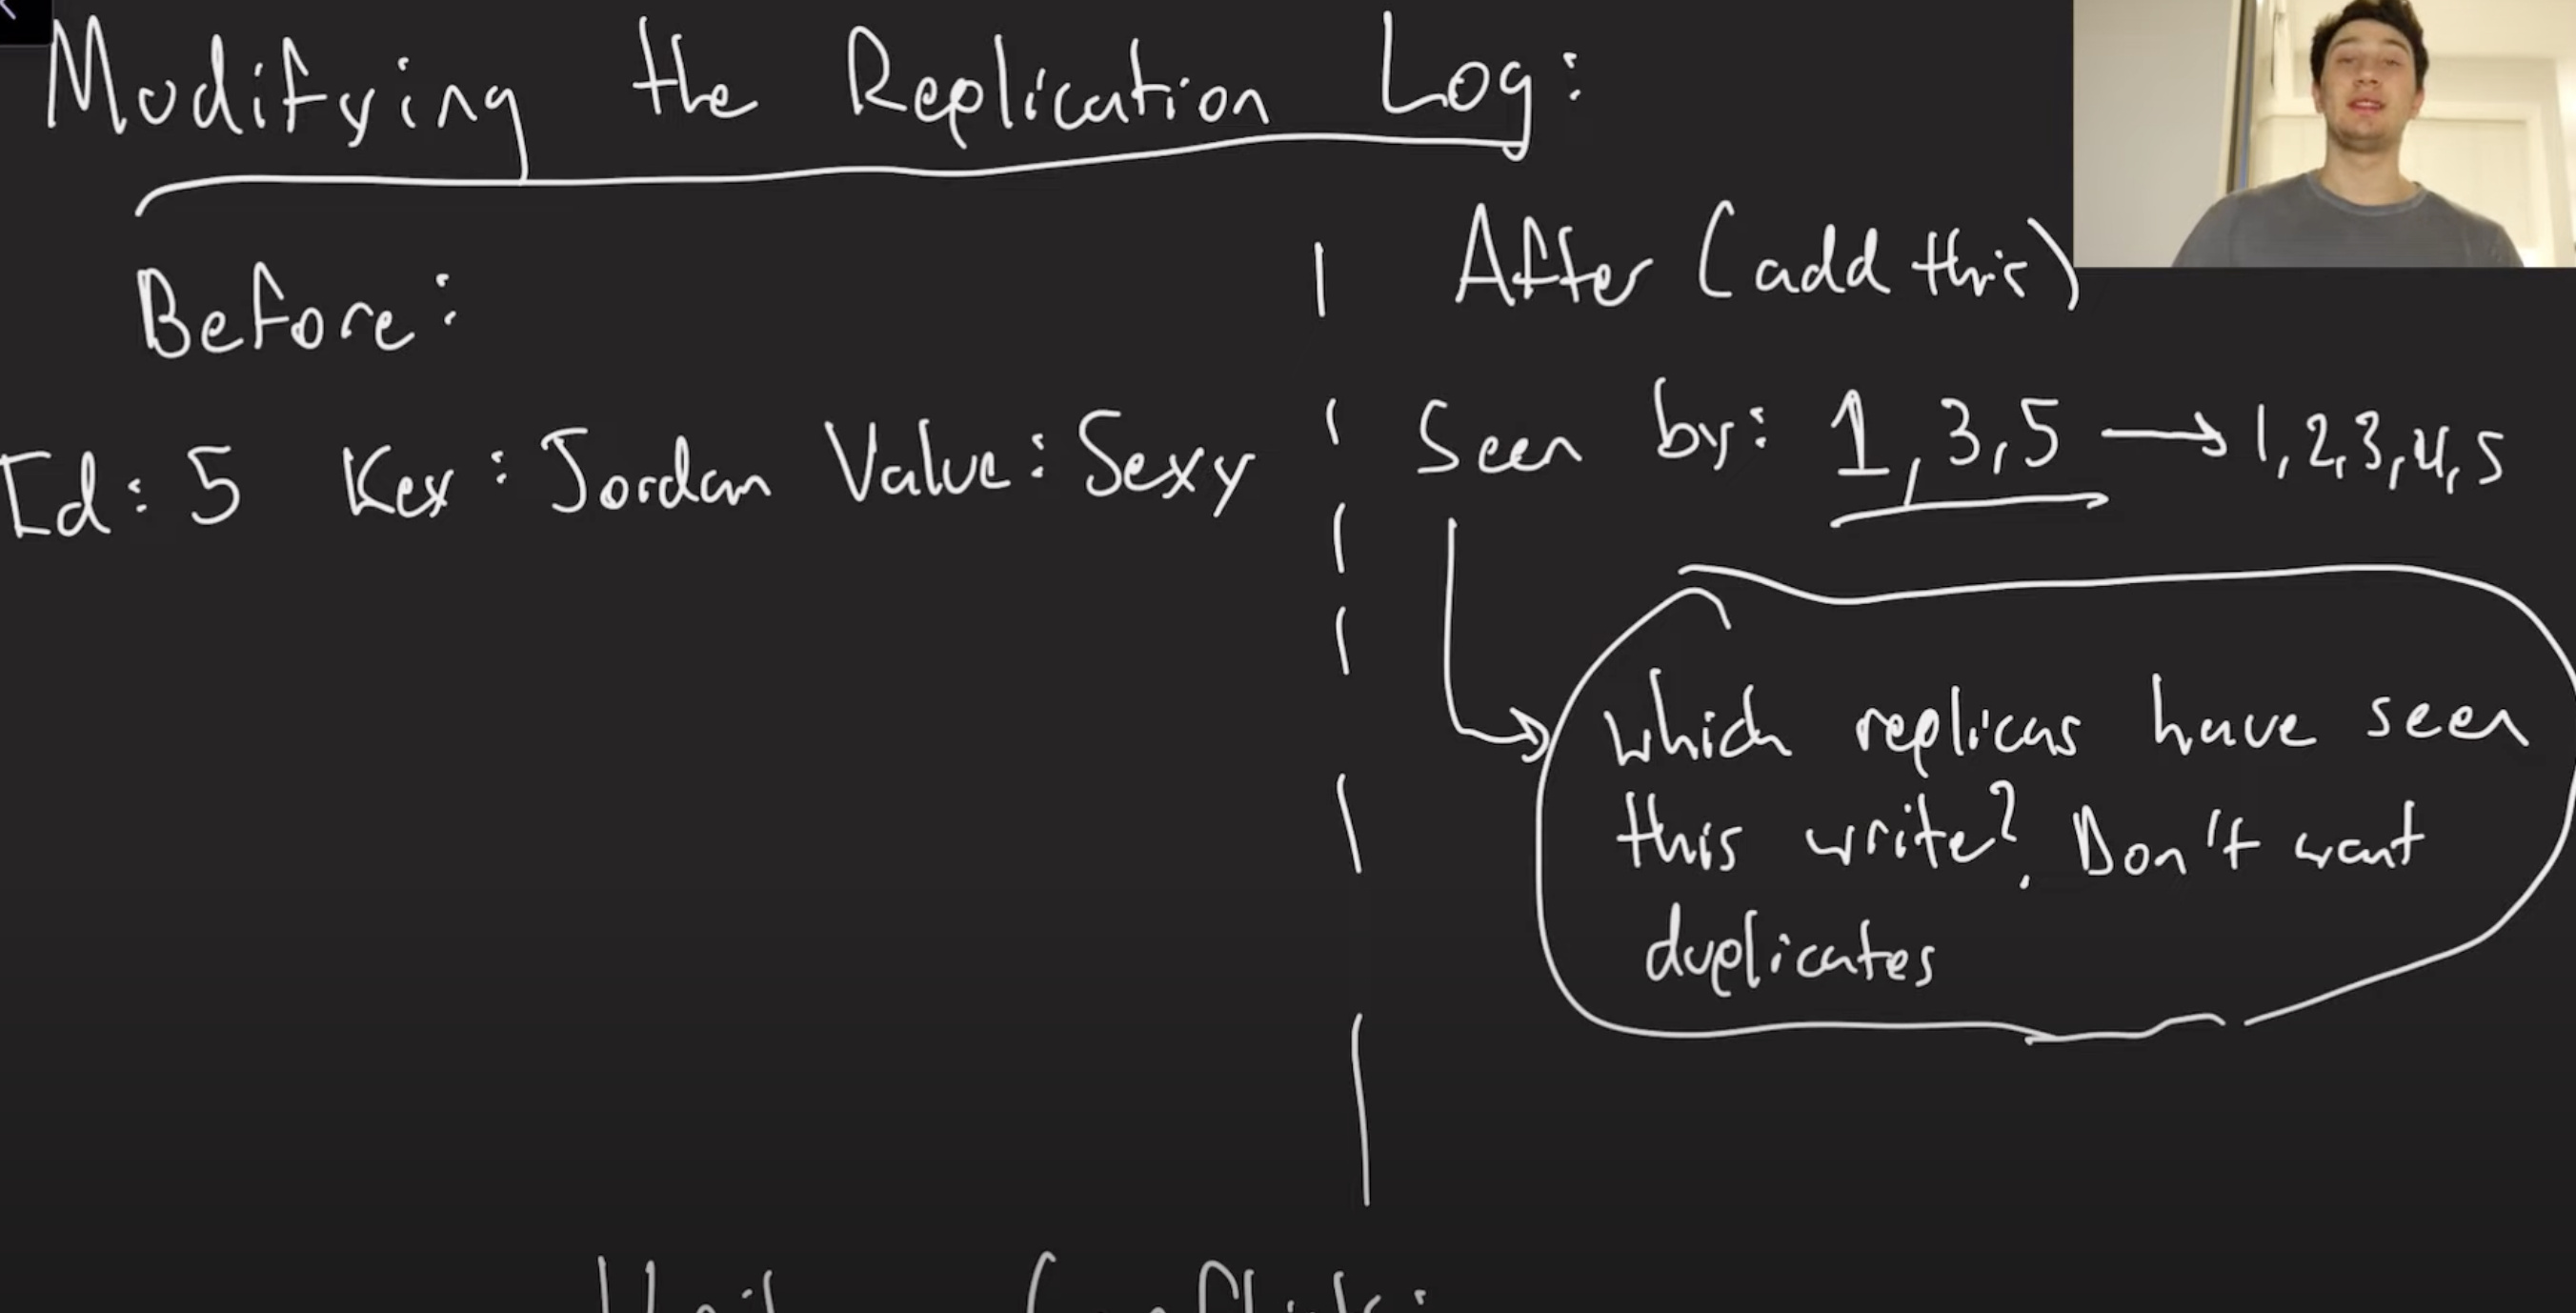 Modifying the Replication Log:
Before:
After (add this)
Id: 5 Key: Jordan Value: Sexy
Seen by: 1,3,5 → 1,2,3,4,5
which replicas have seen
this write? Don't want
duplicates